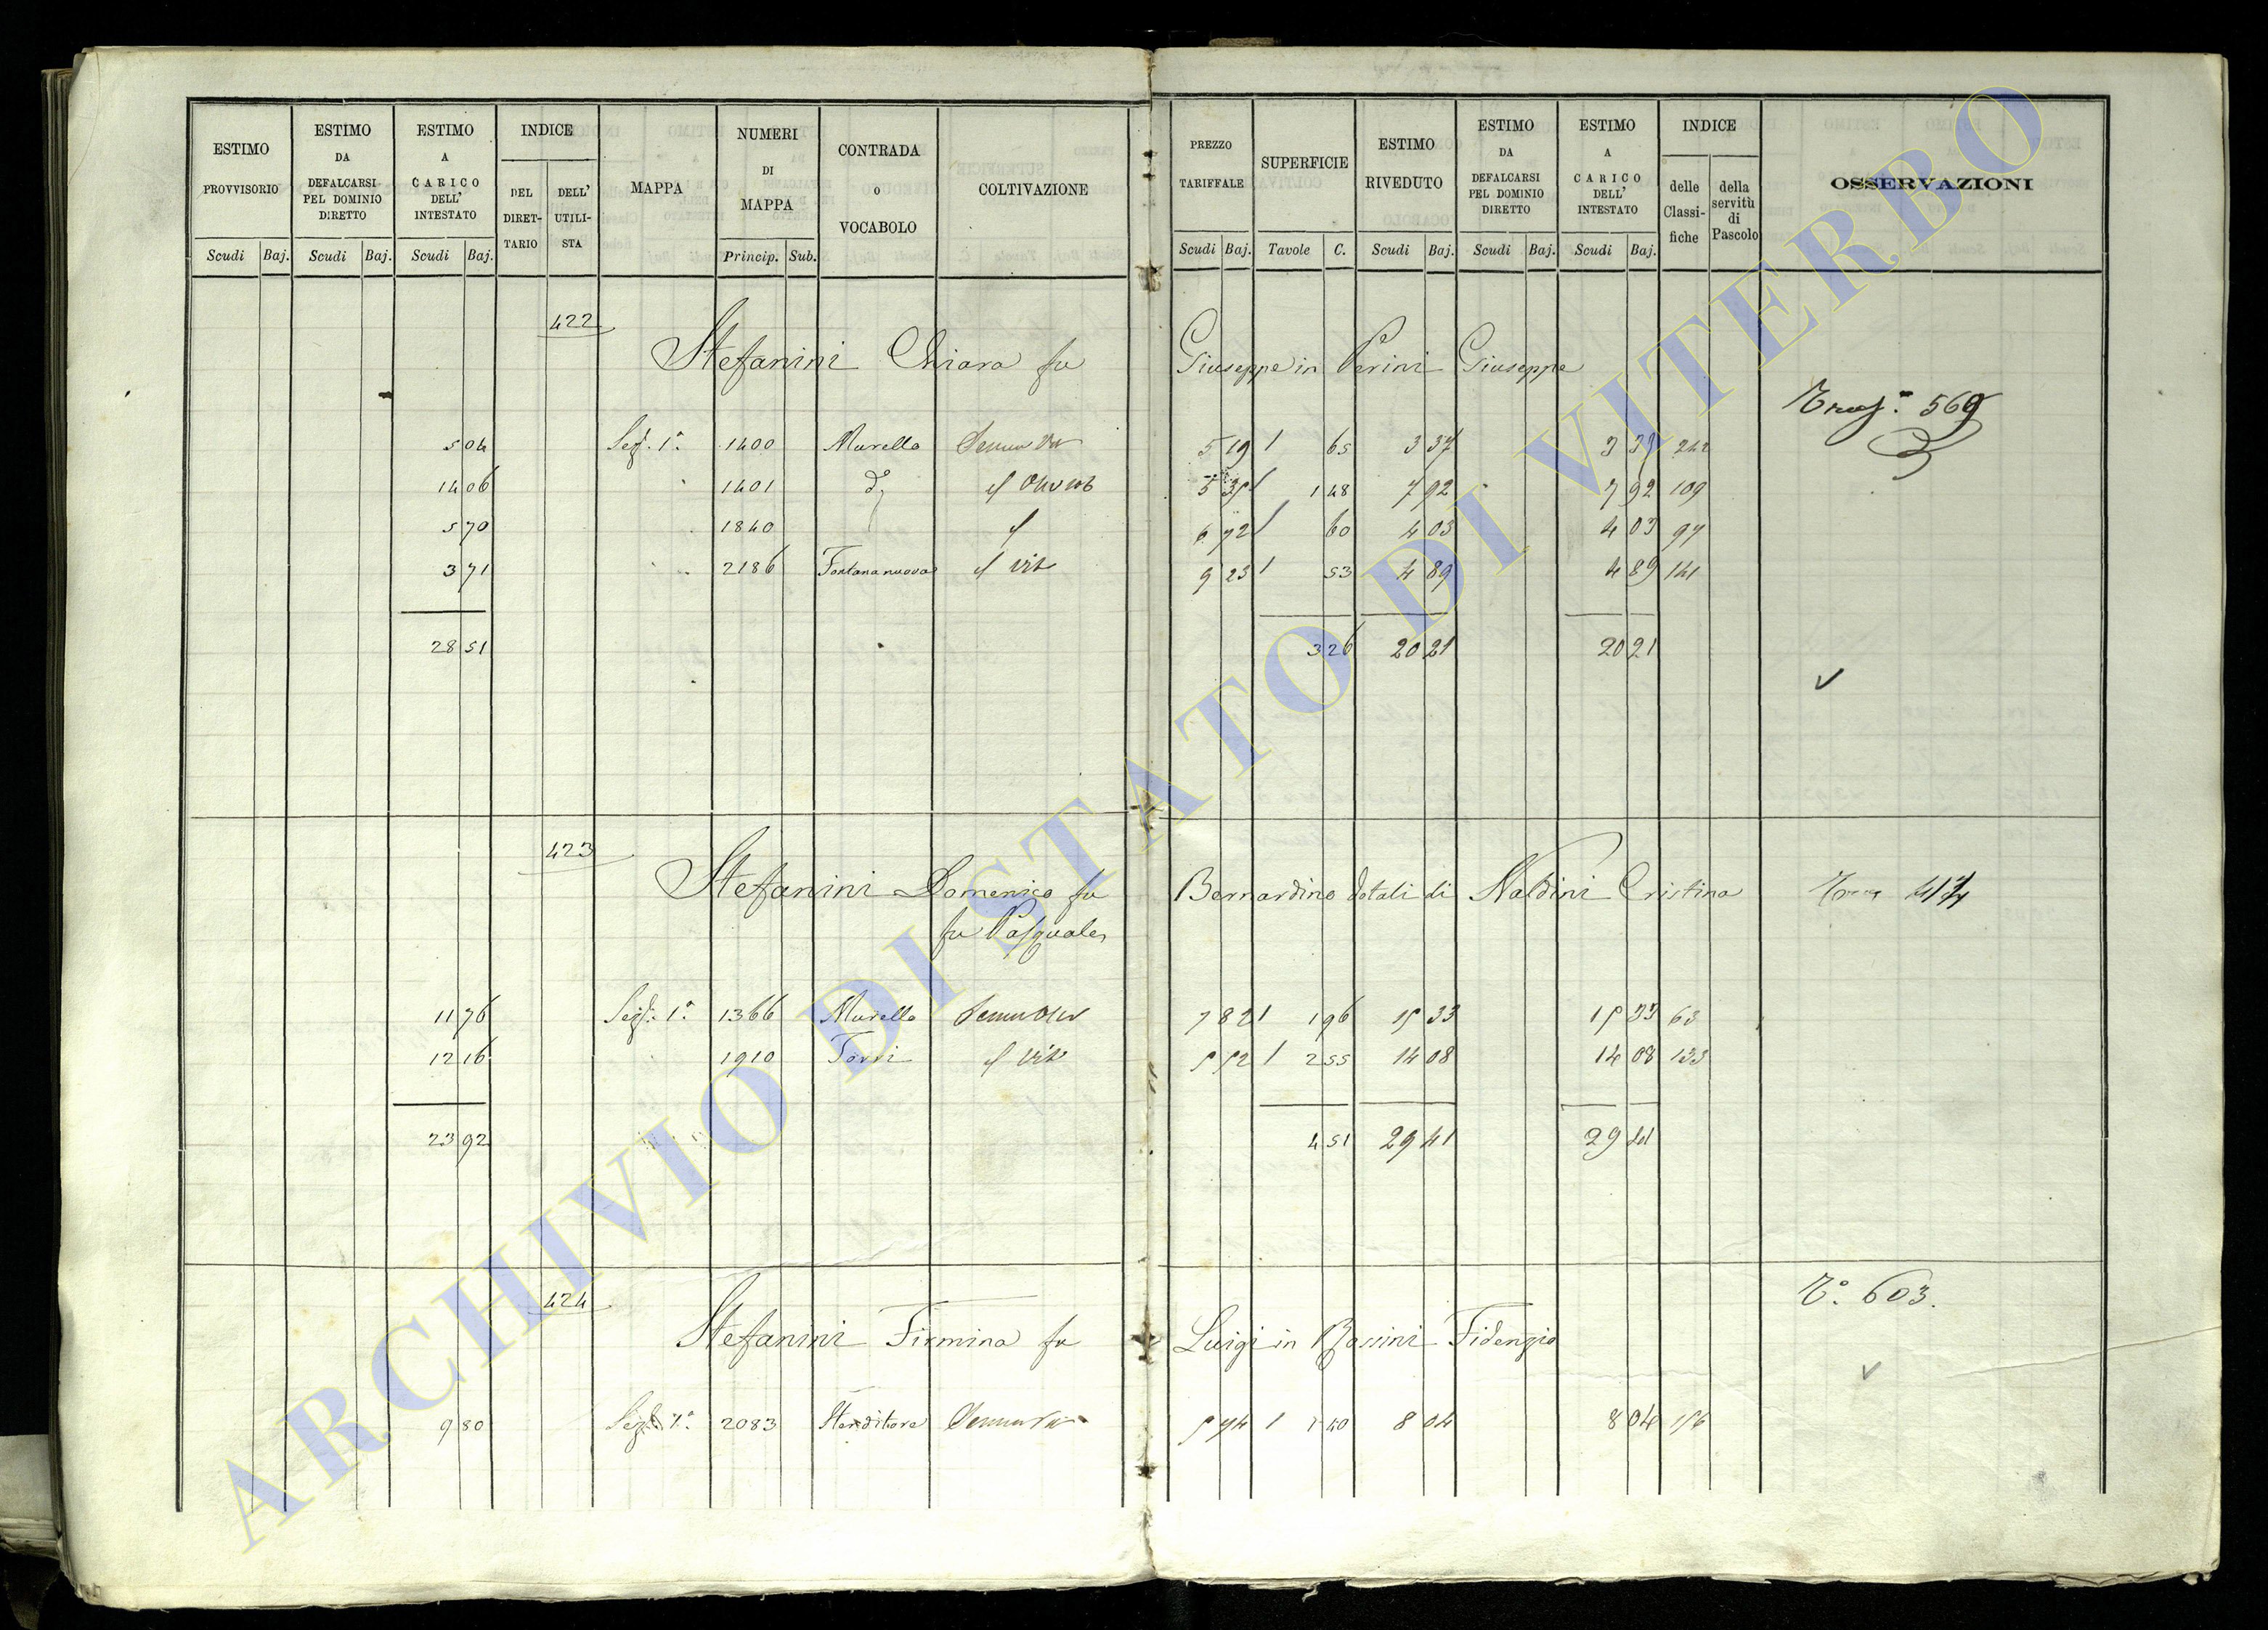 ESTIMO PROVVISORIO Scudi Baj. ESTIMO DA DEFALCARSI PEL DOMINIO DIRETTO Scudi Baj. ESTIMO A CARICO DELL' INTESTATO Scudi Baj. INDICE DEL DIRETTARIO DELL' UTILISTA MAPPA NUMERI DI MAPPA Princip. Sub. CONTRADA o VOCABOLO COLTIVAZIONE PREZZO TARIFFALE Scudi Baj. SUPERFICIE Tavole C. ESTIMO RIVEDUTO Scudi Baj. ESTIMO DA DEFALCARSI PEL DOMINIO DIRETTO Scudi Baj. ESTIMO A CARICO DELL' INTESTATO Scudi Baj. INDICE delle Classifiche della servitù di Pascolo OSSERVAZIONI
422
Stefanini Chiara fu Giuseppe in Perini Giuseppe
569
5 04 1400 Murello 5 19 65 3 37 3 37 242
14 06 1401 148 7 92 7 92 109
5 70 1840 6 72 60 4 03 4 03 97
3 71 2186 Fontana nuova 9 23 53 4 89 4 89 141
28 51 3 26 20 21 20 21
423
Stefanini Domenico fu Bernardino dotali di Naldini Cristina
fu Pasquale
11 76 1366 Murello 7 82 1 96 15 33 15 33 63
12 16 1910 Torri 5 52 2 55 14 08 14 08 133
23 92 4 51 29 41 29 41
424
T.° 603.
Stefanini Firmina fu Luigi in Bassini Fidenzio
9 80 2083 Stenditore 5 74 1 40 8 04 8 04 156
ARCHIVIO DI STATO DI VITERBO